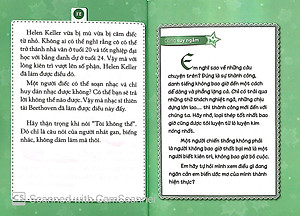 12
Helen Keller vừa bị mù vừa bị câm điếc
từ nhỏ. Không ai có thể nghĩ rằng cô có thể
trở thành nhà văn ở tuổi 20 và tốt nghiệp đại
học với bằng danh dự ở tuổi 24. Vậy mà với
lòng kiên trì vượt lên số phận, Helen Keller
đã làm được điều đó.
Một người điếc có thể soạn nhạc và chỉ
huy dàn nhạc được không? Có thể bạn sẽ trả
lời không thể nào được. Vậy mà nhạc sĩ thiên
tài Beethoven đã làm được điều này đấy.
Hãy thận trọng khi nói "Tôi không thể".
Đó chỉ là câu nói của người nhát gan, biếng
nhác, không dám làm mà thôi.
suy ngẫm
Em nghĩ sao về những câu
chuyện trên? Đúng là sự thành công,
danh tiếng không bao giờ đến một cách
dễ dàng và phẳng lặng cả. Chỉ có trải qua
những thử thách nghiệt ngã, những chịu
đựng lớn lao,... thì thành công mới đến với
chúng ta. Hãy nhớ, loại thép tốt nhất bao
giờ cũng được tôi luyện từ lò luyện kim
nóng nhất.
Một người chiến thắng không phải
là người không bao giờ thất bại mà là một
người biết kiên trì, không bao giờ bỏ cuộc.
Em hãy tự hỏi mình xem điều gì đang
ngăn cản em biến ước mơ của mình thành
hiện thực?
CS Scanned with CamScanner